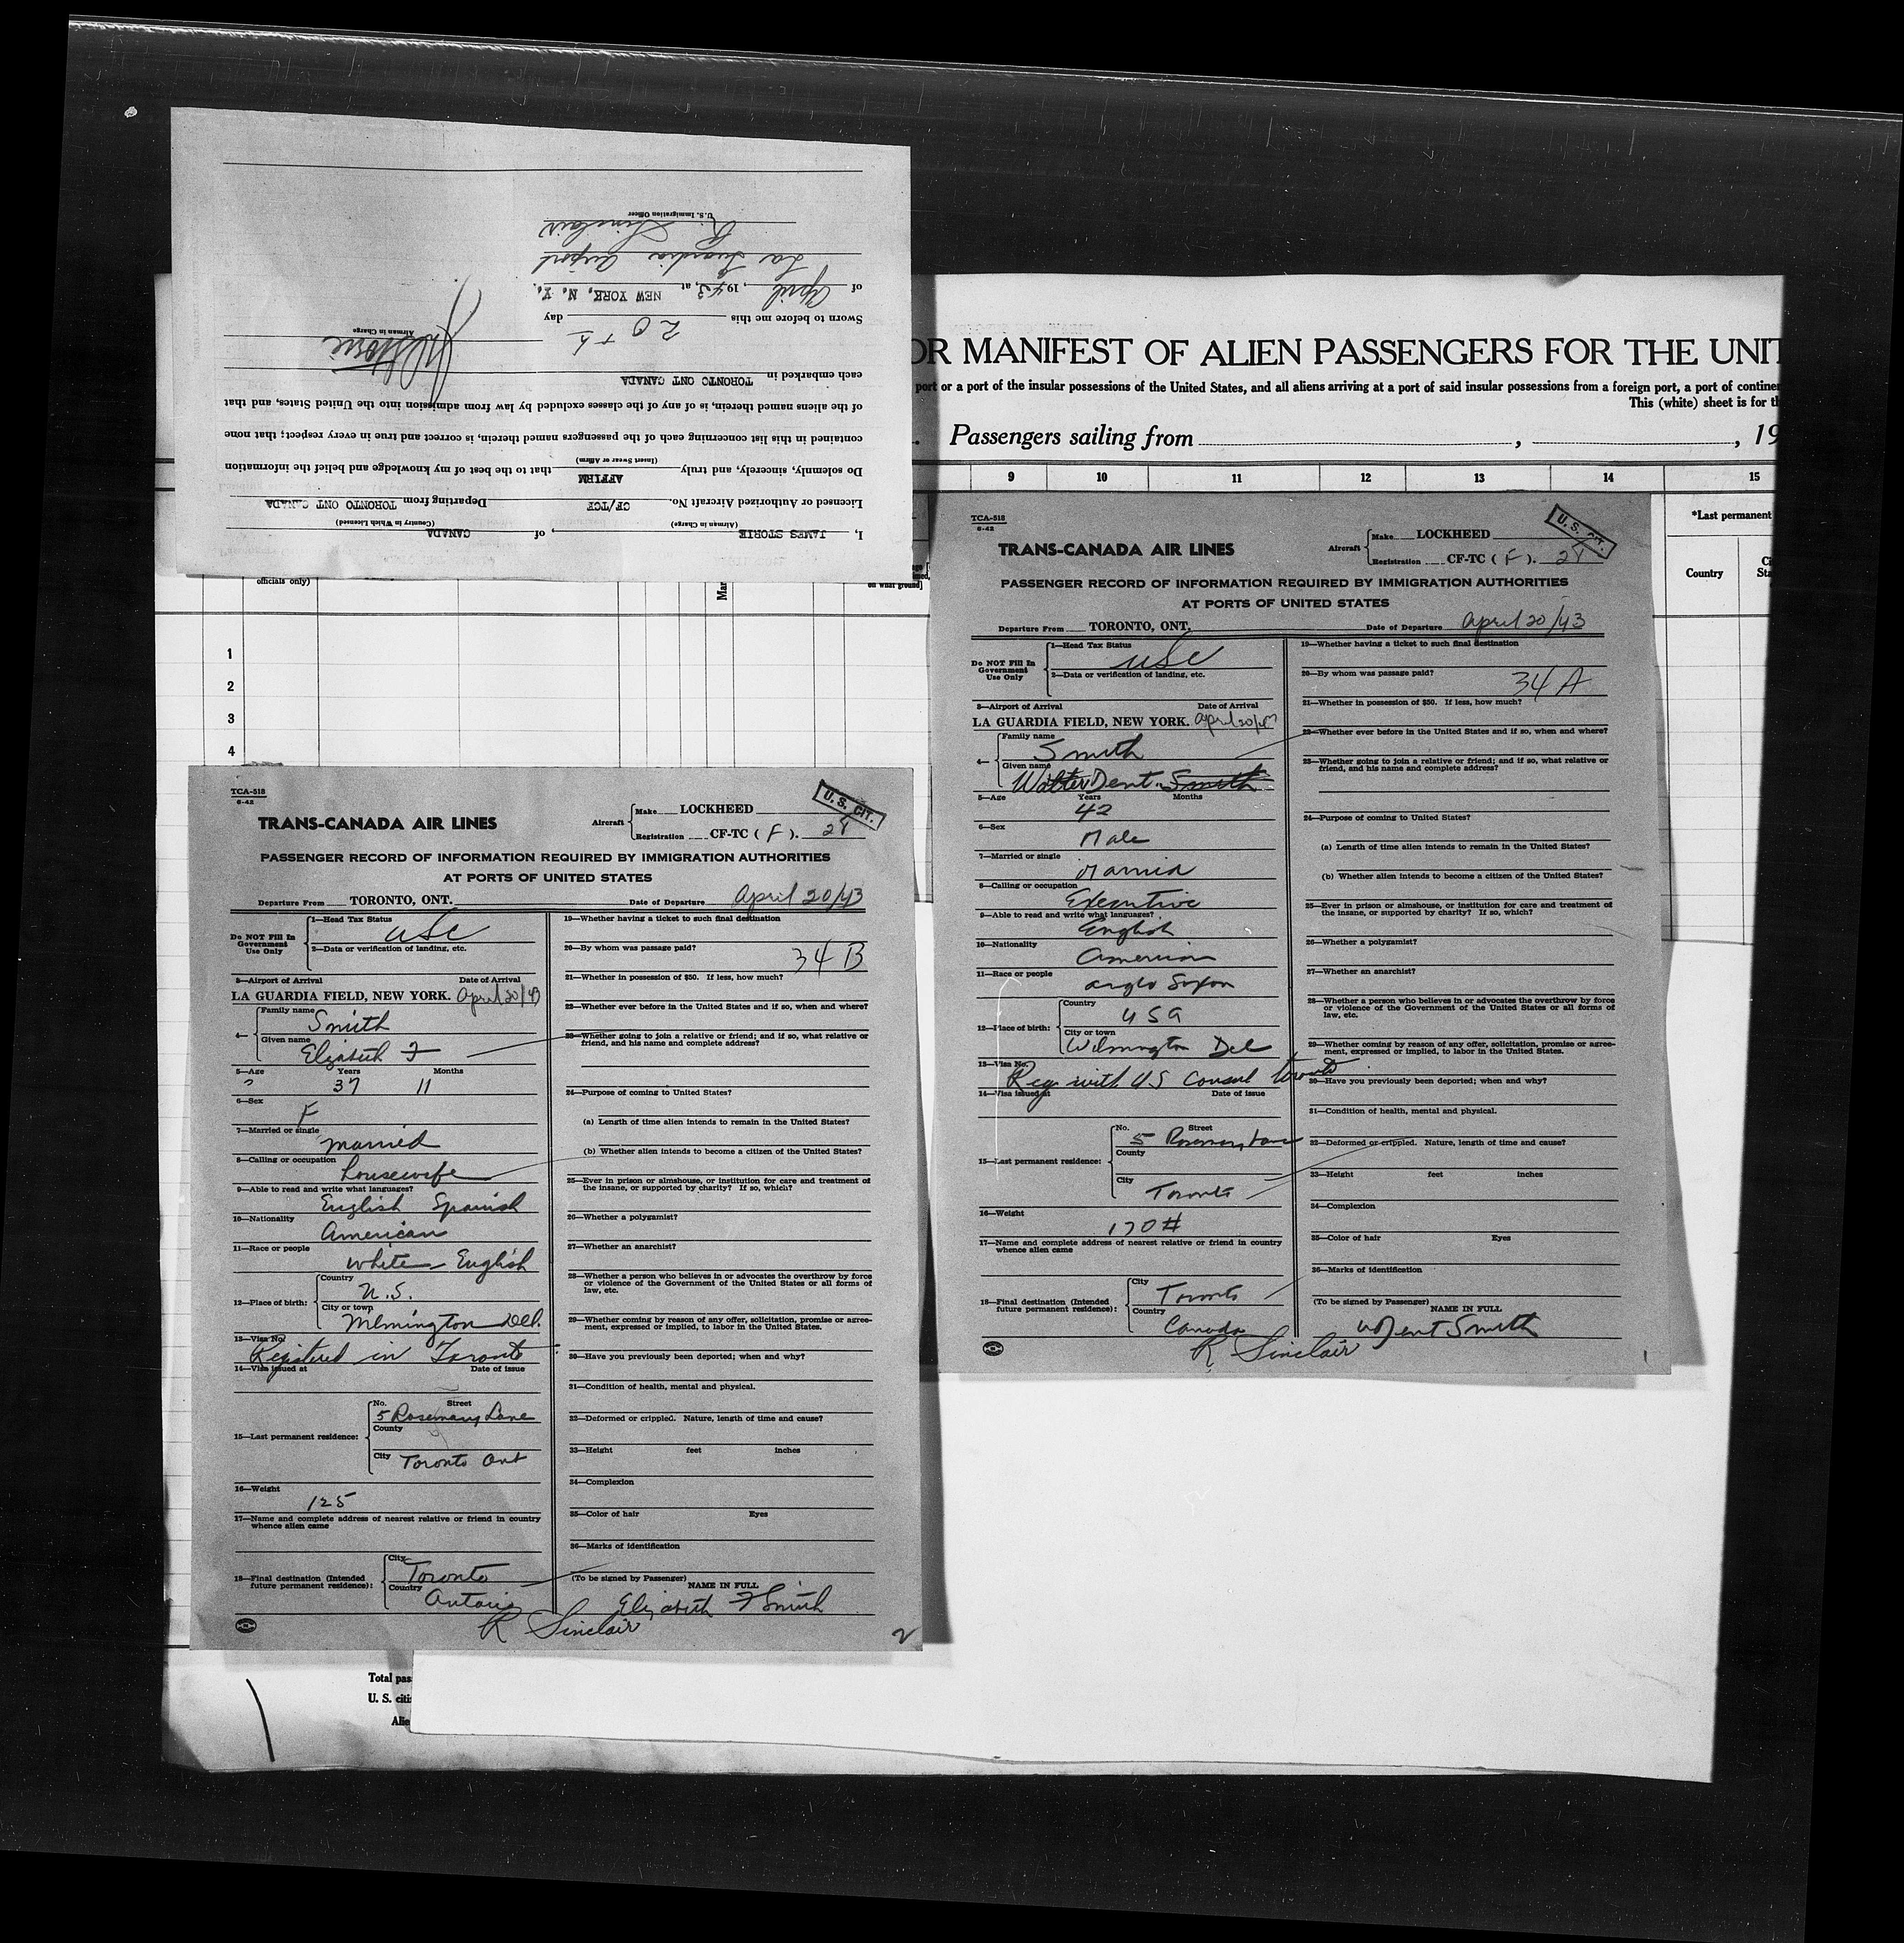 I, JAMES STORIE of CANADA
(Airman in Charge) (Country in Which Licensed)
Licensed or Authorized Aircraft No. CF/TCF Departing from TORONTO ONT CANADA
Do solemnly, sincerely, and truly AFFIRM that to the best of my knowledge and belief the information
(Insert Swear or Affirm)
contained in this list concerning each of the passengers named therein, is correct and true in every respect; that none
of the aliens named therein, is of any of the classes excluded by law from admission into the United States, and that
each embarked in TORONTO ONT CANADA
Airman in Charge
Sworn to before me this 20th day
of April, 1943, at NEW YORK, N. Y.
La Guardia Airport
R. Sinclair
U. S. Immigration Officer
OR MANIFEST OF ALIEN PASSENGERS FOR THE UNIT
port or a port of the insular possessions of the United States, and all aliens arriving at a port of said insular possessions from a foreign port, a port of continen
This (white) sheet is for th
Passengers sailing from , , 19
9 10 11 12 13 14 15
*Last permanent
Country
officials only)
on what ground]
1
2
3
4
TCA-518
6-42
TRANS-CANADA AIR LINES
Aircraft Make LOCKHEED
Registration CF-TC ( F ). 28
U. S. CIT.
PASSENGER RECORD OF INFORMATION REQUIRED BY IMMIGRATION AUTHORITIES
AT PORTS OF UNITED STATES
Departure From TORONTO, ONT. Date of Departure April 20/43
Do NOT Fill In Government Use Only
1—Head Tax Status
USC
2—Data or verification of landing, etc.
3—Airport of Arrival Date of Arrival
LA GUARDIA FIELD, NEW YORK. April 20/43
4— Family name Smith
Given name Elizabeth F
5—Age Years Months
37 11
6—Sex F
7—Married or single married
8—Calling or occupation housewife
9—Able to read and write what languages?
English Spanish
10—Nationality American
11—Race or people white English
12—Place of birth: Country U.S.
City or town Wilmington Del.
13—Visa No.
Registered in Toronto
14—Visa issued at Date of issue
15—Last permanent residence: No. Street
5 Rosemary Lane
County
City Toronto Ont
16—Weight 125
17—Name and complete address of nearest relative or friend in country
whence alien came
18—Final destination (Intended
future permanent residence): City Toronto
Country Ontario
19—Whether having a ticket to such final destination
20—By whom was passage paid?
34 B
21—Whether in possession of $50. If less, how much?
22—Whether ever before in the United States and if so, when and where?
23—Whether going to join a relative or friend; and if so, what relative or
friend, and his name and complete address?
24—Purpose of coming to United States?
(a) Length of time alien intends to remain in the United States?
(b) Whether alien intends to become a citizen of the United States?
25—Ever in prison or almshouse, or institution for care and treatment of
the insane, or supported by charity? If so, which?
26—Whether a polygamist?
27—Whether an anarchist?
28—Whether a person who believes in or advocates the overthrow by force
or violence of the Government of the United States or all forms of
law, etc.
29—Whether coming by reason of any offer, solicitation, promise or agree-
ment, expressed or implied, to labor in the United States.
30—Have you previously been deported; when and why?
31—Condition of health, mental and physical.
32—Deformed or crippled. Nature, length of time and cause?
33—Height feet inches
34—Complexion
35—Color of hair Eyes
36—Marks of identification
(To be signed by Passenger)
NAME IN FULL
Elizabeth F Smith
R Sinclair
2
TCA-518
6-42
TRANS-CANADA AIR LINES
Aircraft Make LOCKHEED
Registration CF-TC ( F ). 28
U. S. CIT.
PASSENGER RECORD OF INFORMATION REQUIRED BY IMMIGRATION AUTHORITIES
AT PORTS OF UNITED STATES
Departure From TORONTO, ONT. Date of Departure April 20/43
Do NOT Fill In Government Use Only
1—Head Tax Status
USC
2—Data or verification of landing, etc.
3—Airport of Arrival Date of Arrival
LA GUARDIA FIELD, NEW YORK. April 20/43
4— Family name Smith
Given name Walter Dent Smith
5—Age Years Months
42
6—Sex Male
7—Married or single Married
8—Calling or occupation Executive
9—Able to read and write what languages?
English
10—Nationality American
11—Race or people Anglo Saxon
12—Place of birth: Country USA
City or town Wilmington Del
13—Visa No.
Reg with US Consul Toronto
14—Visa issued at Date of issue
15—Last permanent residence: No. Street
5 Rosemary Lane
County
City Toronto
16—Weight 170#
17—Name and complete address of nearest relative or friend in country
whence alien came
18—Final destination (Intended
future permanent residence): City Toronto
Country Canada
19—Whether having a ticket to such final destination
20—By whom was passage paid?
34 A
21—Whether in possession of $50. If less, how much?
22—Whether ever before in the United States and if so, when and where?
23—Whether going to join a relative or friend; and if so, what relative or
friend, and his name and complete address?
24—Purpose of coming to United States?
(a) Length of time alien intends to remain in the United States?
(b) Whether alien intends to become a citizen of the United States?
25—Ever in prison or almshouse, or institution for care and treatment of
the insane, or supported by charity? If so, which?
26—Whether a polygamist?
27—Whether an anarchist?
28—Whether a person who believes in or advocates the overthrow by force
or violence of the Government of the United States or all forms of
law, etc.
29—Whether coming by reason of any offer, solicitation, promise or agree-
ment, expressed or implied, to labor in the United States.
30—Have you previously been deported; when and why?
31—Condition of health, mental and physical.
32—Deformed or crippled. Nature, length of time and cause?
33—Height feet inches
34—Complexion
35—Color of hair Eyes
36—Marks of identification
(To be signed by Passenger)
NAME IN FULL
W Dent Smith
R. Sinclair
1
Total pas
U. S. citi
Alie